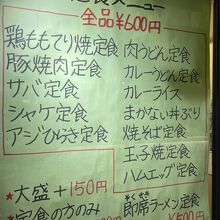 定食メニュー
全品¥600円
鶏ももてり焼定食
豚焼肉定食
サバ定食
シャケ定食
アジひらき定食
肉うどん定食
カレーうどん定食
カレーライス
まかない丼ぶり
焼そば定食
玉子焼定食
ハムエッグ定食
★大盛+150円
★定食の方のみ
そくせき
即席ラーメン定食
¥500円